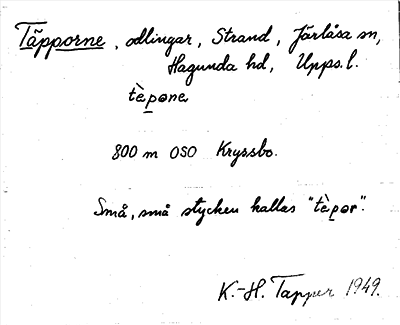 Täpporne, odlingar, Strand, Järlåsa sn,
Hagunda hd, Upps. l.
tèpone
800 m OSO Kryssbo.
Små, små stycken kallas "tèpor".
K.-H. Tapper 1949.